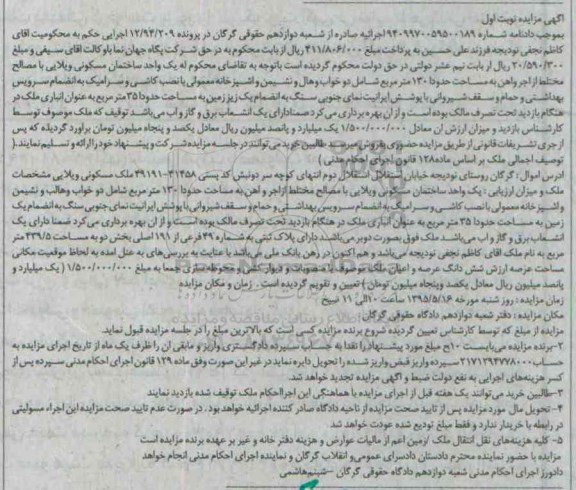 آگهی مزایده نوبت اول
بموجب دادنامه شماره ۹۴۰۹۹۷۰۰۵۹۵۰۰۱۸۹ اجرائیه صادره از شعبه دوازدهم حقوقی گرگان در پرونده ۱۲/۹۴/۲۰۹ اجرایی حکم به محکومیت اقای
کاظم نجفی نودیجه فرزند علی حسین به پرداخت مبلغ ۴۱۱/۸۰۶/۰۰۰ ریال از بابت محکوم به در حق شرکت پگاه جهان نما با وکالت اقای سیفی و مبلغ
۲۰/۵۹۰/۳۰۰ ریال از بابت نیم عشر دولتی در حق دولت محکوم گردیده است باتوجه به تقاضای محکوم له یک واحد ساختمان مسکونی ویلایی با مصالح
مختلط از اجر و اهن به مساحت حدودا ۱۳۰ متر مربع شامل دو خواب و هال و نشیمن و اشپزخانه معمولی با نصب کاشی و سرامیک به انضمام سرویس
بهداشتی و حمام و سقف شیروانی با پوشش ایرانیت نمای جنوبی سنگ به انضمام یک زیر زمین به مساحت حدودا ۳۵ متر مربع به عنوان انباری ملک در
هنگام بازدید تحت تصرف مالک بوده است و از ان بهره برداری می کرد ضمنا دارای یک انشعاب برق و گاز و اب می باشد توقیف که ملک موصوف توسط
کارشناس بازدید و میزان ارزش ان معادل ۱/۵۰۰/۰۰۰/۰۰۰ یک میلیارد و پانصد میلیون ریال معادل یکصد و پنجاه میلیون تومان براورد گردیده که پس
از جری تشریفات قانونی از طریق مزایده حضوری به فروش میرسد طالبین خرید می توانند در جلسه مزایده شرکت و پیشنهاد خود را ارائه و تسلیم نمایند.(
توصیف اجمالی ملک بر اساس ماده ۱۲۸ قانون اجرای احکام مدنی )
ادرس اموال : گرگان روستای نودیجه خیابان استقلال استقلال دوم انتهای کوچه سر دونبش کد پستی ۳۱۴۵۸-۴۹۱۹۱ ملک مسکونی ویلایی مشخصات
ملک و میزان ارزیابی : یک واحد ساختمان مسکونی ویلایی با مصالح مختلط ازاجر و اهن به مساحت حدودا ۱۳۰ متر مربع شامل دو خواب وهالب و نشیمن
و اشپزخانه معمولی با نصب کاشی و سرامیک به انضمام سرویس بهداشتی و حمام و سقف شیروانی با پوشش ایرانیت نمای جنوبی سنگ به انضمام یک
زمین به مساحت حدودا ۳۵ متر مربع به عنوان انباری ملک در هنگام بازدید تحت تصرف مالک بوده است و از ان بهره برداری می کرد ضمنا دارای یک
انشعاب برق و گاز و اب می باشد ملک فوق بصورت دوبر می باشند دارای پلاک ثبتی به شماره ۴۹ فرعی از ۱۹۱ اصلی بخش دو به مساحت ۴۳۹/۵ متر
مربع به نام ملک اقای کاظم نجفی نودیجه می باشد و هم اکنون در رهن بانک ملی می باشد با عنایت به بررسی های به عمل امده به لحاظ موقعیت مکانی
مساحت عرصه ارزش شش دانگ عرصه و اعیان ملک موصوف با منصوبات و دیوار کشی و محوطه سازی جمعا به مبلغ ۱/۵۰۰/۰۰۰/۰۰۰ ( یک میلیارد و
پانصد میلیون ریال معادل یکصد وپنجاه میلیون تومان )تعیین و تقویم گردیده است . زمان و مکان مزایده
زمان مزایده : روز شنبه مورخه ۱۳۹۵/۵/۱۶ ساعت ۱۰ الی ۱۱ صبح
مکان مزایده: دفتر شعبه دوازدهم دادگاه حقوقی گرگان
مزایده از مبلغ که توسط کارشناس تعیین گردیده شروع برنده مزایده کسی است که بالاترین مبلغ را در جلسه مزایده قبول نماید.
۲-برنده مزایده می بایست ۱۰٪ مبلغ مورد پیشنهاد را نقدا به حساب سپرده دادگستری واریز و مابقی ان را ظرف یک ماه از تاریخ اجرای مزایده به
حساب ۲۱۷۱۲۹۴۷۷۸۰۰۰ سپرده واریز قبض واریز شده را تحویل دایره نماید در غیر این صورت وفق ماده ۱۲۹ قانون اجرای احکام مدنی سپرده پس از
کسر هزینه‌های اجرایی به نفع دولت ضبط و اگهی مزایده تجدید خواهد شد.
۳-طالبین خرید می توانند یک هفته قبل از اجرای مزایده با هماهنگی این اجرااحکام ملک توقیف شده بازدید نمایند
۴-تحویل مال مورد مزایده پس از تایید صحت مزایده از ناحیه دادگاه صادر کننده اجرائیه خواهد بود . در صورت عدم تایید صحت مزایده این اجراء مسئولیتی
در رابطه با خریدار ندارد و فقط مبلغ تودیع شده عودت خواهد شد.
۵- کلیه هزینه‌های نقل انتقال ملک /زمین اعم از مالیات عوارض و هزینه دفتر خانه و غیر بر عهده برنده مزایده است
مزایده با حضور نماینده محترم دادستان دادسرای عمومی و انقلاب گرگان و نماینده اجرای احکام مدنی انجام خواهد
دادورز اجرای احکام مدنی شعبه دوازدهم دادگاه حقوقی گرگان -شبنم‌هاشمی